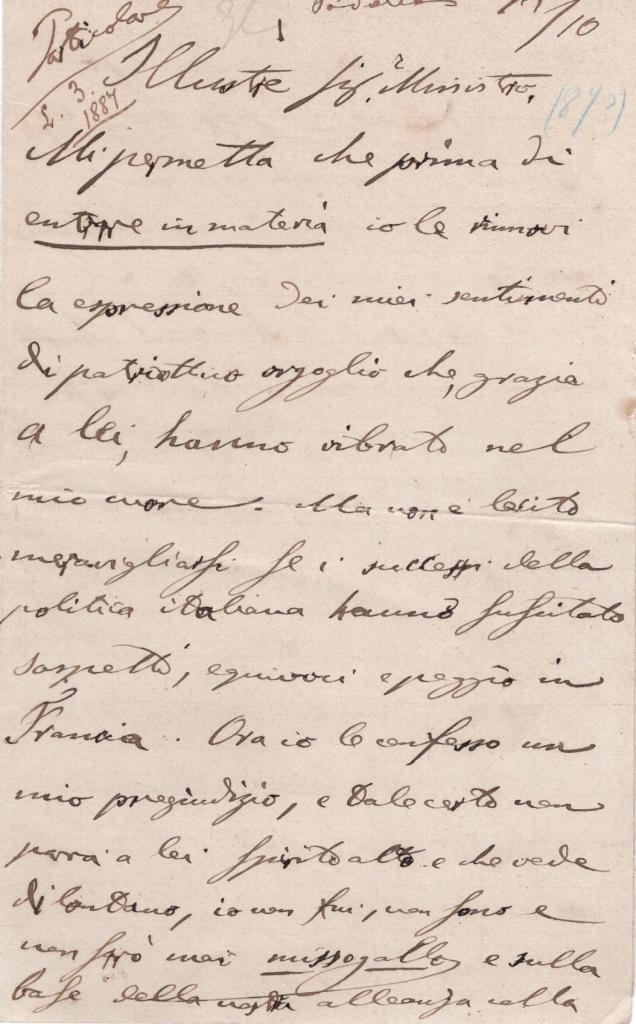 Particolare
/10
L. 3.
1887
Illustre Sig.r Ministro,
Mi permetta che prima di
entrare in materia io le rinnovi
la espressione dei miei sentimenti
di patriottico orgoglio che, grazie
a lei, hanno vibrato nel
mio cuore. Ma non è lecito
meravigliarsi se i successi della
politica italiana hanno suscitato
sospetti, equivoci e peggio in
Francia. Ora io le confesso un
mio pregiudizio, e tale certo non
parrà a lei spirito alto e che vede
di lontano, io non fui, non sono e
non sarò mai missogallo e sulla
base della nostra alleanza colla